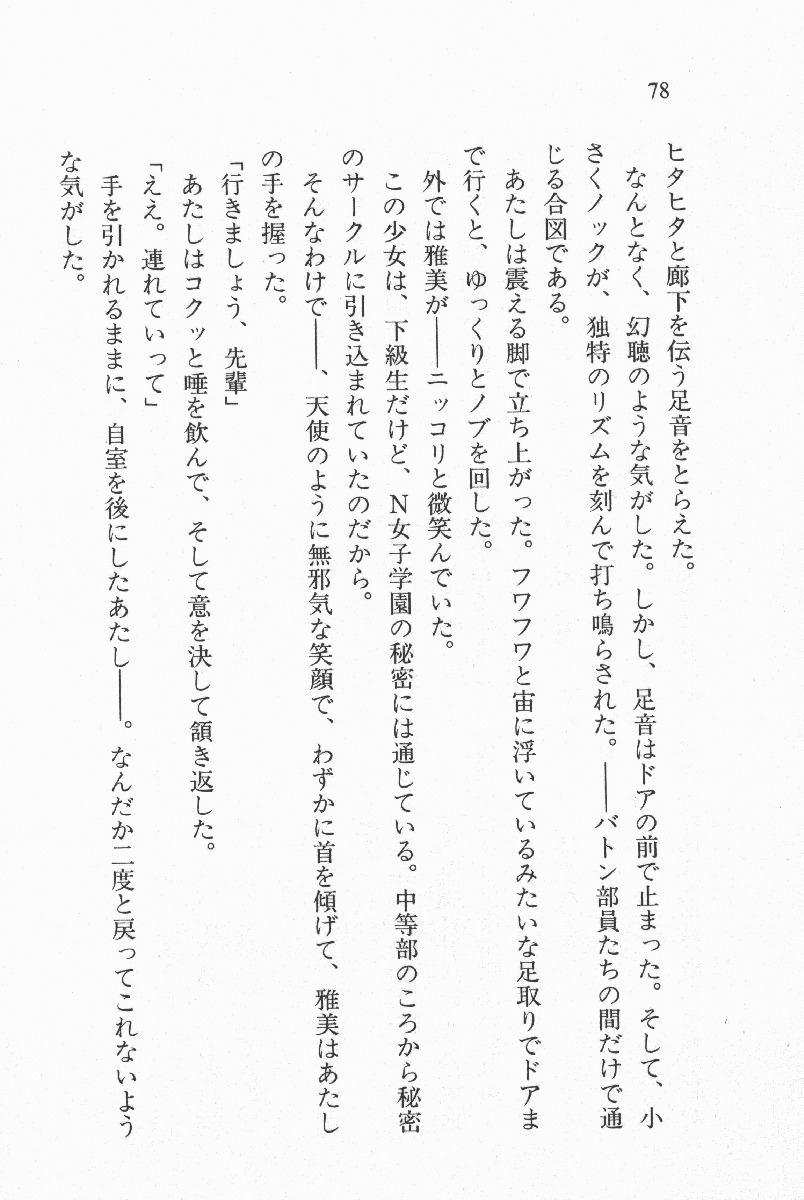 78
ヒタヒタと廊下を伝う足音をとらえた。
なんとなく、幻聴のような気がした。しかし、足音はドアの前で止まった。そして、小
さくノックが、独特のリズムを刻んで打ち鳴らされた。――バトン部員たちの間だけで通
じる合図である。
あたしは震える脚で立ち上がった。フワフワと宙に浮いているみたいな足取りでドアま
で行くと、ゆっくりとノブを回した。
外では雅美が――ニッコリと微笑んでいた。
この少女は、下級生だけど、N女子学園の秘密には通じている。中等部のころから秘密
のサークルに引き込まれていたのだから。
そんなわけで――、天使のように無邪気な笑顔で、わずかに首を傾げて、雅美はあたし
の手を握った。
「行きましょう、先輩」
あたしはコクッと唾を飲んで、そして意を決して頷き返した。
「ええ。連れていって」
手を引かれるままに、自室を後にしたあたし――。なんだか二度と戻ってこれないよう
な気がした。